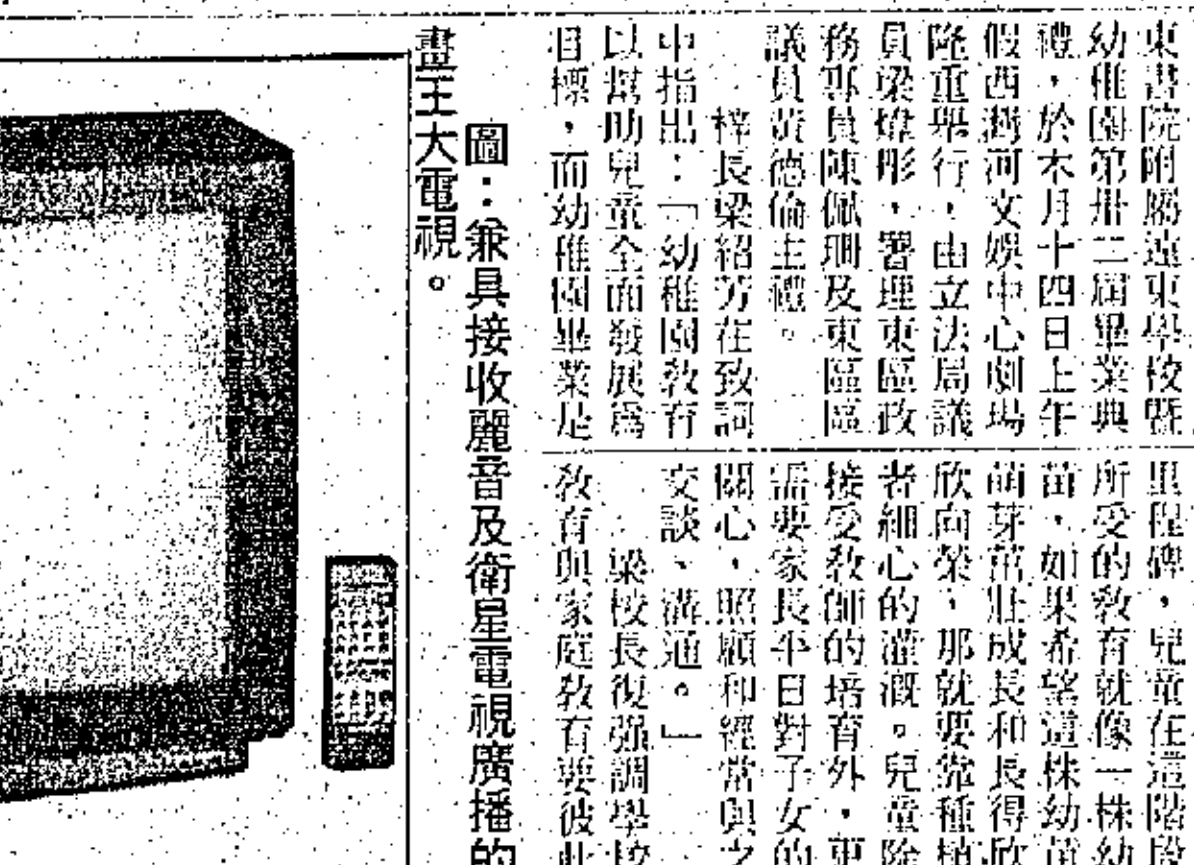 東書院附屬遠東學校暨
幼稚園第卅二屆畢業典
禮，於本月十四日上午
假西灣河文娛中心劇場
隆重舉行，由立法局議
員梁煒彤，署理東區政
務專員陳佩珊及東區區
議員黃德倫主禮。
梓長梁紹芳在致詞
中指出：「幼稚園教育
以幫助兒童全面發展爲
目標，而幼稚園畢業是
里程碑，兒童在這階段
所受的教育就像一株幼
苗，如果希望這株幼苗
萌芽茁壯成長和長得欣
欣向榮，那就要靠種植
者細心的灌溉。兒童除
接受教師的培育外，更
需要家長平日對子女的
關心，照顧和經常與之
交談、溝通。」
梁校長復强調學校
教育與家庭教育要彼此
圖：兼具接收麗音及衛星電視廣播的
畫王大電視。